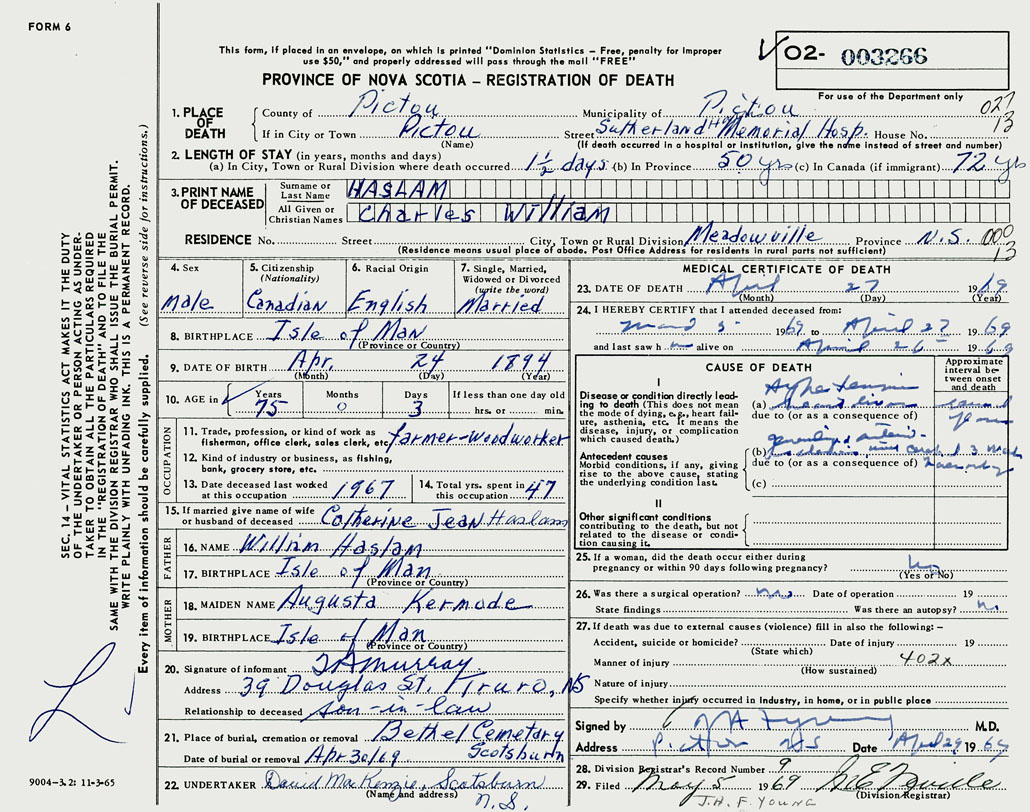 FORM 6
This form, if placed in an envelope, on which is printed "Dominion Statistics – Free, penalty for improper
use $50," and properly addressed will pass through the mail "FREE"
PROVINCE OF NOVA SCOTIA – REGISTRATION OF DEATH
O2- 003266
For use of the Department only
1. PLACE OF DEATH
County of Pictou Municipality of Pictou 027
If in City or Town Pictou Street Sutherland Memorial Hosp. House No. 13
(Name) (If death occurred in a hospital or institution, give the name instead of street and number)
2. LENGTH OF STAY (in years, months and days)
(a) In City, Town or Rural Division where death occurred 1½ days (b) In Province 50 yrs (c) In Canada (if immigrant) 72 yrs
3. PRINT NAME OF DECEASED
Surname or Last Name HASLAM
All Given or Christian Names Charles William
RESIDENCE No. Street City, Town or Rural Division Meadowville Province N.S. 000
(Residence means usual place of abode. Post Office Address for residents in rural parts not sufficient) 13
4. Sex Male
5. Citizenship (Nationality) Canadian
6. Racial Origin English
7. Single, Married, Widowed or Divorced (write the word) Married
8. BIRTHPLACE Isle of Man
(Province or Country)
9. DATE OF BIRTH Apr. 24 1894
(Month) (Day) (Year)
10. AGE in Years 75 Months 0 Days 3 If less than one day old hrs. or min.
OCCUPATION
11. Trade, profession or kind of work as fisherman, office clerk, sales clerk, etc. farmer-Woodworker
12. Kind of industry or business, as fishing, bank, grocery store, etc.
13. Date deceased last worked at this occupation 1967
14. Total yrs. spent in this occupation 47
15. If married give name of wife or husband of deceased Catherine Jean Haslam
FATHER
16. NAME William Haslam
17. BIRTHPLACE Isle of Man
(Province or Country)
MOTHER
18. MAIDEN NAME Augusta Kermode
19. BIRTHPLACE Isle of Man
(Province or Country)
20. Signature of informant Murray
Address 39 Douglas St. Truro, NS
Relationship to deceased son-in-law
21. Place of burial, cremation or removal Bethel Cemetary
Date of burial or removal Apr. 30/69 Scotsburn
22. UNDERTAKER David MacKenzie, Scotsburn
(Name and address) N.S.
MEDICAL CERTIFICATE OF DEATH
23. DATE OF DEATH April 27 1969
(Month) (Day) (Year)
24. I HEREBY CERTIFY that I attended deceased from:
1969 to April 27 1969
and last saw h alive on April 26 1969
CAUSE OF DEATH
Approximate interval between onset and death
I
Disease or condition directly leading to death (This does not mean the mode of dying, e.g., heart failure, asthenia, etc. It means the disease, injury, or complication which caused death.)
(a) Hypertensive
due to (or as a consequence of)
Antecedent causes
Morbid conditions, if any, giving rise to the above cause, stating the underlying condition last.
(b)
due to (or as a consequence of)
(c)
II
Other significant conditions contributing to the death, but not related to the disease or condition causing it.
25. If a woman, did the death occur either during pregnancy or within 90 days following pregnancy? No
(Yes or No)
26. Was there a surgical operation? no Date of operation 19
State findings Was there an autopsy? no
27. If death was due to external causes (violence) fill in also the following: –
Accident, suicide or homicide? Date of injury 19
(State which)
Manner of injury 402X
(How sustained)
Nature of injury
Specify whether injury occurred in industry, in home, or in public place
Signed by M.D.
Address Pictou NS Date April 29 1969
28. Division Registrar's Record Number 9
29. Filed May 5 1969
(Division Registrar)
J.H.F. YOUNG
SEC. 14 – VITAL STATISTICS ACT MAKES IT THE DUTY
OF THE UNDERTAKER OR PERSON ACTING AS UNDER-
TAKER TO OBTAIN ALL THE PARTICULARS REQUIRED
IN THE "REGISTRATION OF DEATH" AND TO FILE THE
SAME WITH THE DIVISION REGISTRAR WHO SHALL ISSUE THE BURIAL PERMIT.
WRITE PLAINLY WITH UNFADING INK. THIS IS A PERMANENT RECORD.
Every item of information should be carefully supplied. (See reverse side for instructions.)
9004-3.2: 11-3-65